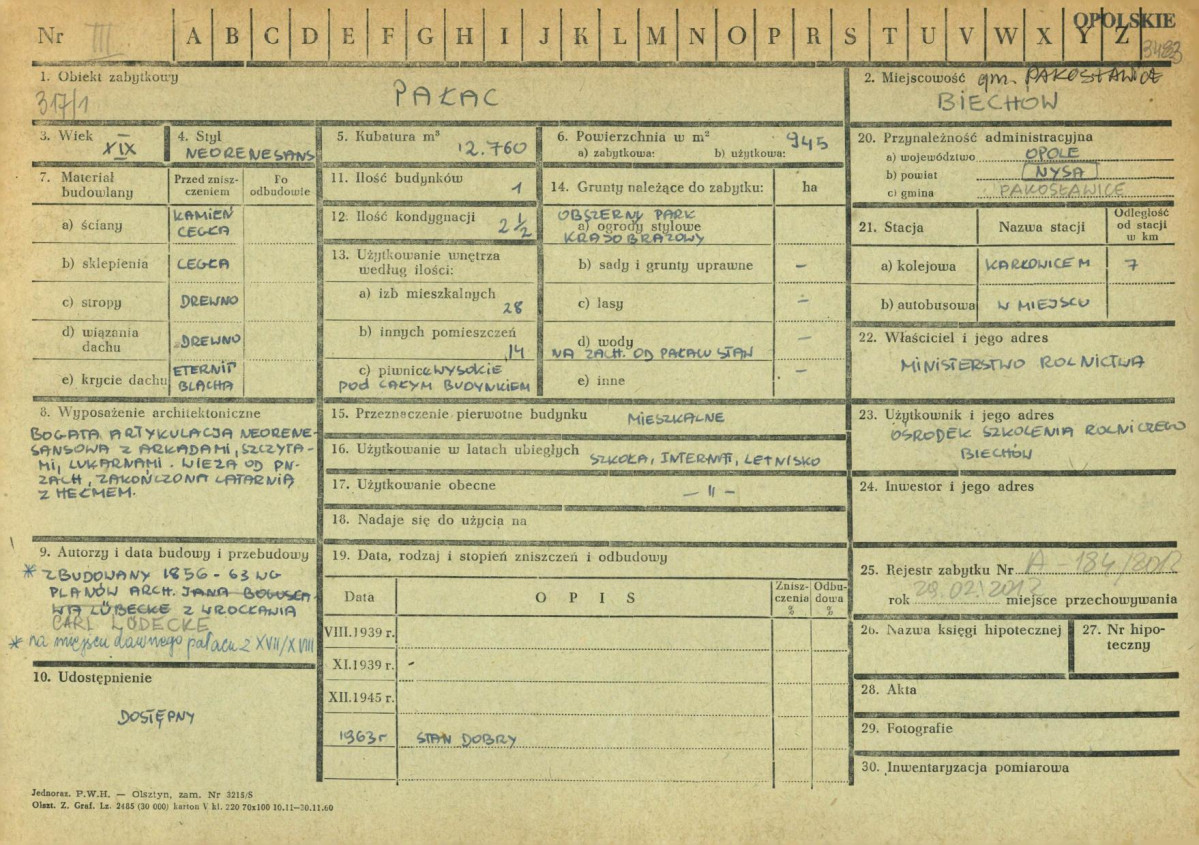 Nr III A B C D E F G H I J K L M N O P R S T U V W X Y Z OPOLSKIE
3483
1. Obiekt zabytkowy
317/1
PAŁAC
2. Miejscowość gm. PAKOSŁAWICE
BIECHOW
3. Wiek XIX
4. Styl
NEORENESANS
5. Kubatura m³
12.760
6. Powierzchnia w m²
a) zabytkowa: b) użytkowa: 945
7. Materiał budowlany
Przed zniszczeniem
Po odbudowie
a) ściany KAMIEŃ CEGŁA
b) sklepienia CEGŁA
c) stropy DREWNO
d) wiązania dachu DREWNO
e) krycie dachu ETERNIT BLACHA
8. Wyposażenie architektoniczne
BOGATA ARTYKULACJA NEORENE-
SANSOWA Z ARKADAMI, SZCZYTA-
MI, LUKARNAMI. WIEŻA OD PN-
ZACH, ZAKOŃCZONA LATARNIĄ
Z HEŁMEM.
9. Autorzy i data budowy i przebudowy
* ZBUDOWANY 1856-63 WG
PLANÓW ARCH. JANA BOGUSŁA-
WA LÜBECKE Z WROCŁAWIA
CARL LÜDECKE
* na miejscu dawnego pałacu z XVII/XVIII
10. Udostępnienie
DOSTĘPNY
11. Ilość budynków 1
12. Ilość kondygnacji 2 1/2
13. Użytkowanie wnętrza
według ilości:
a) izb mieszkalnych
28
b) innych pomieszczeń
14
c) piwnice WYSOKIE
POD CAŁYM BUDYNKIEM
14. Grunty należące do zabytku: ha
OBSZERNY PARK
a) ogrody stylowe
KRAJOBRAZOWY
b) sady i grunty uprawne –
c) lasy –
d) wody –
NA ZACH. OD PAŁACU STAW
e) inne –
15. Przeznaczenie pierwotne budynku MIESZKALNE
16. Użytkowanie w latach ubiegłych SZKOŁA, INTERNAT, LETNISKO
17. Użytkowanie obecne – 11 –
18. Nadaje się do użycia na
19. Data, rodzaj i stopień zniszczeń i odbudowy
Data OPIS Zniszczenia % Odbudowa %
VIII.1939 r.
XI.1939 r. -
XII.1945 r.
1963 r STAN DOBRY
20. Przynależność administracyjna
a) województwo OPOLE
b) powiat NYSA
c) gmina PAKOSŁAWICE
21. Stacja Nazwa stacji Odległość od stacji w km
a) kolejowa 7
b) autobusowa W MIEJSCU
22. Właściciel i jego adres
MINISTERSTWO ROLNICTWA
23. Użytkownik i jego adres
OŚRODEK SZKOLENIA ROLNICZEGO
BIECHÓW
24. Inwestor i jego adres
25. Rejestr zabytku Nr A-184/2012
rok 29.02.2012 miejsce przechowywania
26. Nazwa księgi hipotecznej
27. Nr hipoteczny
28. Akta
29. Fotografie
30. Inwentaryzacja pomiarowa
Jednoraz. P.W.H. — Olsztyn, zam. Nr 3215/S
Olszt. Z. Graf. Lz. 2485 (30 000) karton V kl. 220 70x100 10.11—30.11.60